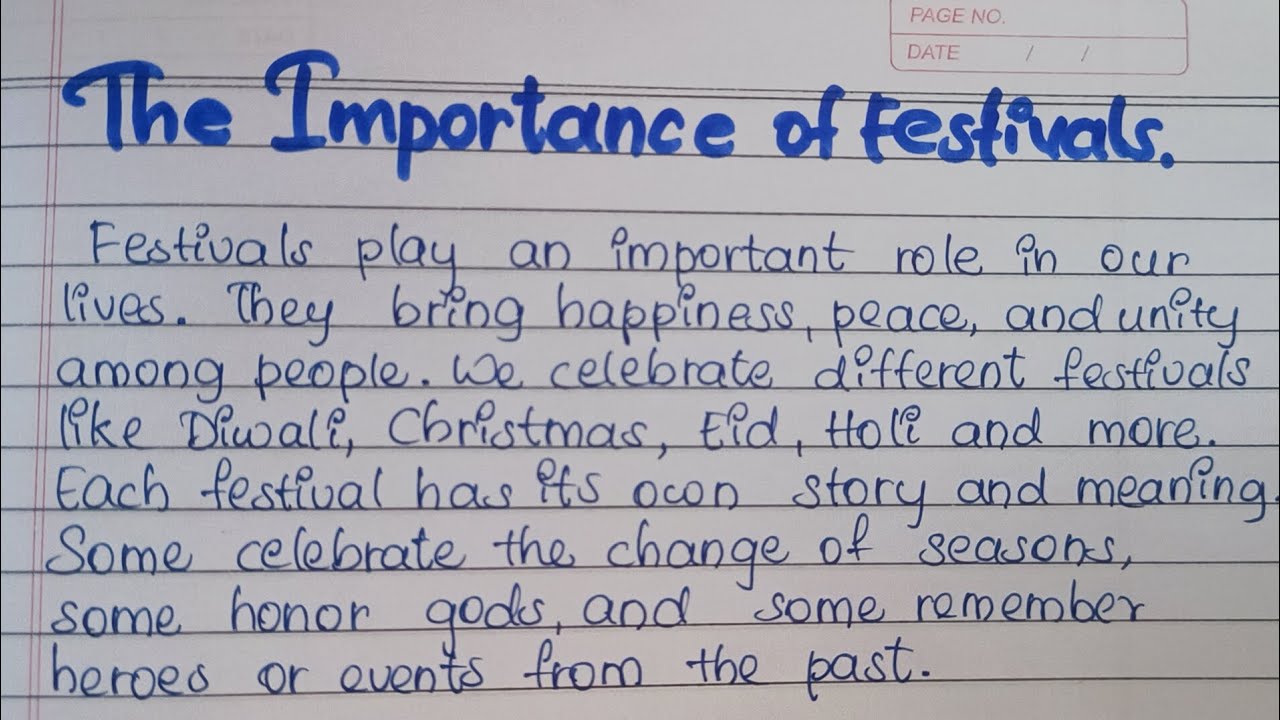 PAGE NO.
DATE / /
The Importance of Festivals.
Festivals play an important role in our
lives. They bring happiness, peace, and unity
among people. We celebrate different festivals
like Diwali, Christmas, Eid, Holi and more.
Each festival has its own story and meaning.
Some celebrate the change of seasons,
some honor gods, and some remember
heroes or events from the past.